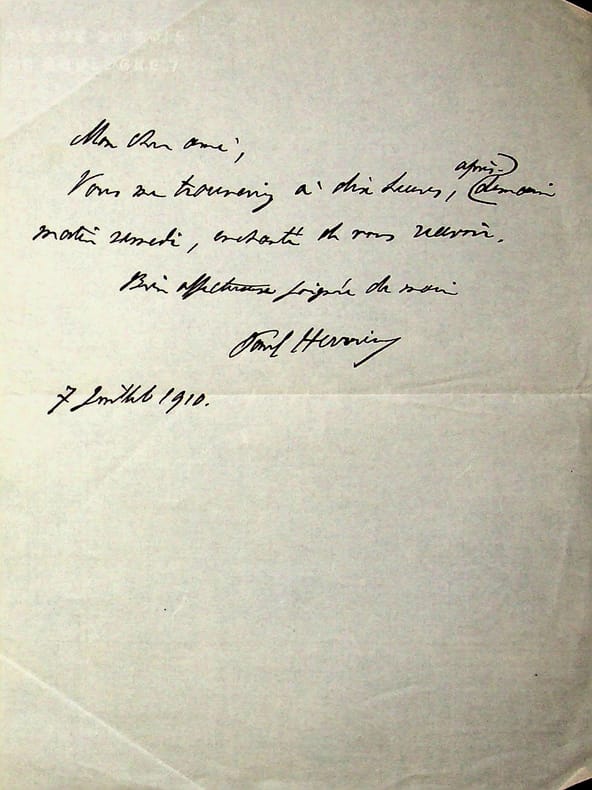 Mon cher ami,
Vous me trouverez à dix heures, après-demain
matin samedi, enchanté de vous recevoir.
Bien affectueuse poignée de main
Paul Hervieu
7 Juillet 1910.